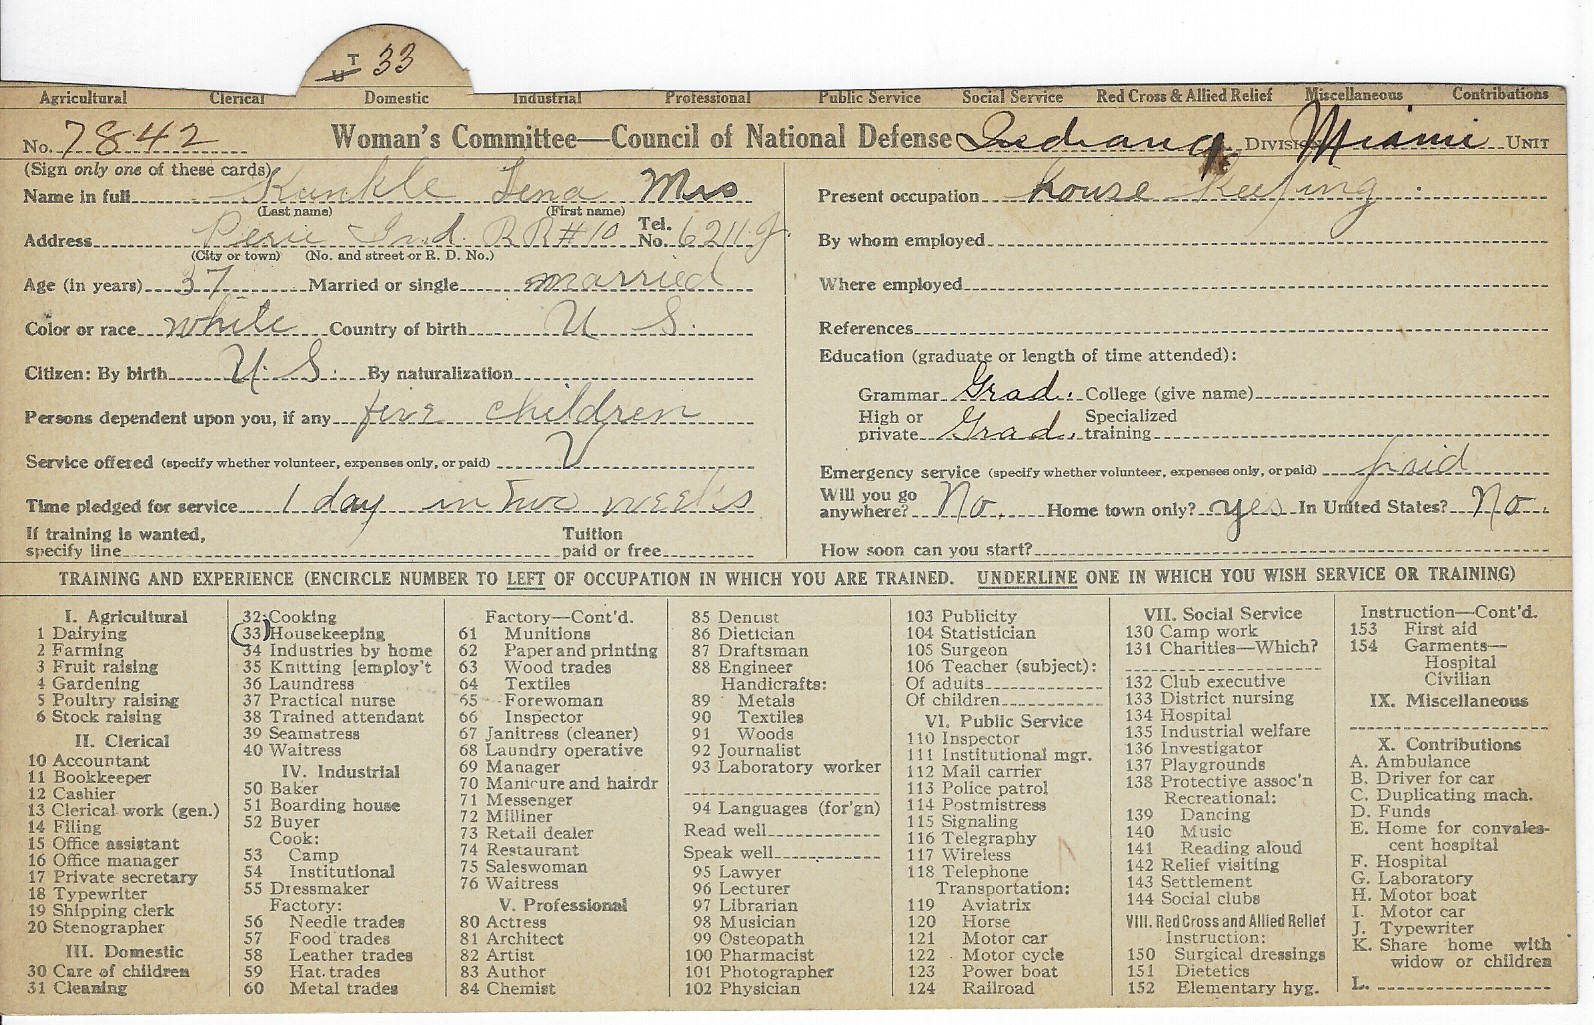 T
U 33
Agricultural Clerical Domestic Industrial Professional Public Service Social Service Red Cross & Allied Relief Miscellaneous Contributions
No. 7842 Woman's Committee—Council of National Defense Indiana DIVISION Miami UNIT
(Sign only one of these cards)
Name in full Kunkle Lena Mrs
(Last name) (First name)
Address Peru Ind. RR#10 Tel. No. 6211-J
(City or town) (No. and street or R. D. No.)
Age (in years) 37 Married or single married
Color or race white Country of birth U S.
Citizen: By birth U. S. By naturalization
Persons dependent upon you, if any five children
Service offered (specify whether volunteer, expenses only, or paid) V
Time pledged for service 1 day in two weeks
If training is wanted, specify line Tuition paid or free
Present occupation house keeping
By whom employed
Where employed
References
Education (graduate or length of time attended):
Grammar Grad. College (give name)
High or private Grad. Specialized training
Emergency service (specify whether volunteer, expenses only, or paid) paid
Will you go anywhere? No. Home town only? yes In United States? No.
How soon can you start?
TRAINING AND EXPERIENCE (ENCIRCLE NUMBER TO LEFT OF OCCUPATION IN WHICH YOU ARE TRAINED. UNDERLINE ONE IN WHICH YOU WISH SERVICE OR TRAINING)
I. Agricultural
1 Dairying
2 Farming
3 Fruit raising
4 Gardening
5 Poultry raising
6 Stock raising
II. Clerical
10 Accountant
11 Bookkeeper
12 Cashier
13 Clerical work (gen.)
14 Filing
15 Office assistant
16 Office manager
17 Private secretary
18 Typewriter
19 Shipping clerk
20 Stenographer
III. Domestic
30 Care of children
31 Cleaning
32 Cooking
33 Housekeeping
34 Industries by home
35 Knitting [employ't
36 Laundress
37 Practical nurse
38 Trained attendant
39 Seamstress
40 Waitress
IV. Industrial
50 Baker
51 Boarding house
52 Buyer
Cook:
53 Camp
54 Institutional
55 Dressmaker
Factory:
56 Needle trades
57 Food trades
58 Leather trades
59 Hat trades
60 Metal trades
Factory—Cont'd.
61 Munitions
62 Paper and printing
63 Wood trades
64 Textiles
65 Forewoman
66 Inspector
67 Janitress (cleaner)
68 Laundry operative
69 Manager
70 Manicure and hairdr
71 Messenger
72 Milliner
73 Retail dealer
74 Restaurant
75 Saleswoman
76 Waitress
V. Professional
80 Actress
81 Architect
82 Artist
83 Author
84 Chemist
85 Dentist
86 Dietician
87 Draftsman
88 Engineer
Handicrafts:
89 Metals
90 Textiles
91 Woods
92 Journalist
93 Laboratory worker
94 Languages (for'gn)
Read well
Speak well
95 Lawyer
96 Lecturer
97 Librarian
98 Musician
99 Osteopath
100 Pharmacist
101 Photographer
102 Physician
103 Publicity
104 Statistician
105 Surgeon
106 Teacher (subject):
Of adults
Of children
VI. Public Service
110 Inspector
111 Institutional mgr.
112 Mail carrier
113 Police patrol
114 Postmistress
115 Signaling
116 Telegraphy
117 Wireless
118 Telephone
Transportation:
119 Aviatrix
120 Horse
121 Motor car
122 Motor cycle
123 Power boat
124 Railroad
VII. Social Service
130 Camp work
131 Charities—Which?
132 Club executive
133 District nursing
134 Hospital
135 Industrial welfare
136 Investigator
137 Playgrounds
138 Protective assoc'n
Recreational:
139 Dancing
140 Music
141 Reading aloud
142 Relief visiting
143 Settlement
144 Social clubs
VIII. Red Cross and Allied Relief
Instruction:
150 Surgical dressings
151 Dietetics
152 Elementary hyg.
Instruction—Cont'd.
153 First aid
154 Garments—
Hospital
Civilian
IX. Miscellaneous
X. Contributions
A. Ambulance
B. Driver for car
C. Duplicating mach.
D. Funds
E. Home for convales-
cent hospital
F. Hospital
G. Laboratory
H. Motor boat
I. Motor car
J. Typewriter
K. Share home with
widow or children
L.